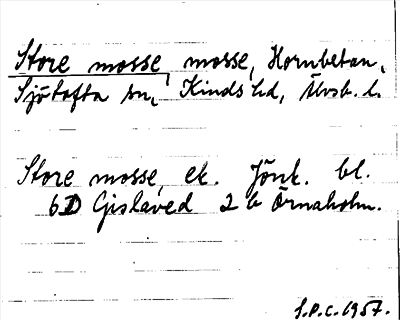 Store mosse, mosse, Hornbetan,
Sjötofta sn, Kinds hd, Älvsb. l.
Store mosse, ek. Jönk. bl.
6D Gislaved 2 b Örnaholm.
S.P.C. 1957.